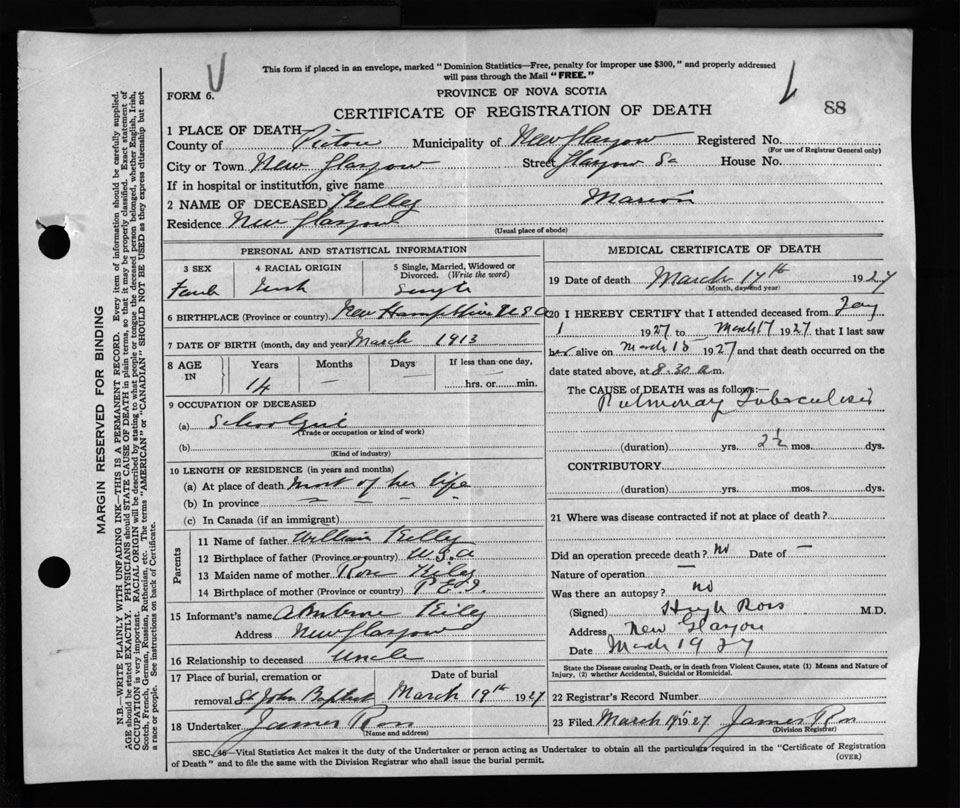 This form if placed in an envelope, marked "Dominion Statistics—Free, penalty for improper use $300," and properly addressed
will pass through the Mail "FREE."
FORM 6.
PROVINCE OF NOVA SCOTIA
CERTIFICATE OF REGISTRATION OF DEATH
88
1 PLACE OF DEATH—
County of Pictou Municipality of New Glasgow Registered No.
(For use of Registrar General only)
City or Town New Glasgow Street Glasgow House No.
If in hospital or institution, give name
2 NAME OF DECEASED Kelley Marion
Residence New Glasgow
(Usual place of abode)
PERSONAL AND STATISTICAL INFORMATION
3 SEX
4 RACIAL ORIGIN
5 Single, Married, Widowed or Divorced. (Write the word)
Irish Single
6 BIRTHPLACE (Province or country) New Hampshire U S A
7 DATE OF BIRTH (month, day and year) March 1913
8 AGE IN
Years Months Days If less than one day,
14 — — hrs. or min.
9 OCCUPATION OF DECEASED
(a) School Girl
(Trade or occupation or kind of work)
(b)
(Kind of industry)
10 LENGTH OF RESIDENCE (in years and months)
(a) At place of death most of her life
(b) In province
(c) In Canada (if an immigrant)
Parents
11 Name of father William Kelly
12 Birthplace of father (Province or country) U.S.A
13 Maiden name of mother Rose Kiley
14 Birthplace of mother (Province or country) P.E.I.
15 Informant's name Ambrose Kiley
Address New Glasgow
16 Relationship to deceased Uncle
17 Place of burial, cremation or removal St John Baptist
Date of burial
March 19th 1927
18 Undertaker James Ross
(Name and address)
MEDICAL CERTIFICATE OF DEATH
19 Date of death March 17th 1927
(Month, day and year)
20 I HEREBY CERTIFY that I attended deceased from Jany
1 1927 to March 17 1927 that I last saw
her alive on March 15 1927 and that death occurred on the
date stated above, at 8.30 a.m.
The CAUSE of DEATH was as follows:—
Pulmonary Tuberculosis
(duration) yrs. 2½ mos. dys.
CONTRIBUTORY
(duration) yrs. mos. dys.
21 Where was disease contracted if not at place of death?
Did an operation precede death? No Date of —
Nature of operation —
Was there an autopsy? no
(Signed) Hugh Ross M.D.
Address New Glasgow
Date March 19 27
State the Disease causing Death, or in death from Violent Causes, state (1) Means and Nature of
Injury, (2) whether Accidental, Suicidal or Homicidal.
22 Registrar's Record Number
23 Filed March 19th 1927 James Ross
(Division Registrar)
SEC. 46—Vital Statistics Act makes it the duty of the Undertaker or person acting as Undertaker to obtain all the particulars required in the "Certificate of Registration
of Death" and to file the same with the Division Registrar who shall issue the burial permit.
(OVER)
MARGIN RESERVED FOR BINDING
N.B.—WRITE PLAINLY WITH UNFADING INK—THIS IS A PERMANENT RECORD. Every item of information should be carefully supplied.
AGE should be stated EXACTLY. PHYSICIANS should STATE CAUSE OF DEATH in plain terms, so that it may be properly classified. Exact statement of
OCCUPATION is very important. RACIAL ORIGIN will be described by stating to what people or tongue the deceased person belonged, whether English, Irish,
Scotch, French, German, Russian, Ruthenian, etc. The terms "AMERICAN" or "CANADIAN" SHOULD NOT BE USED as they express citizenship but not
a race or people. See instructions on back of Certificate.